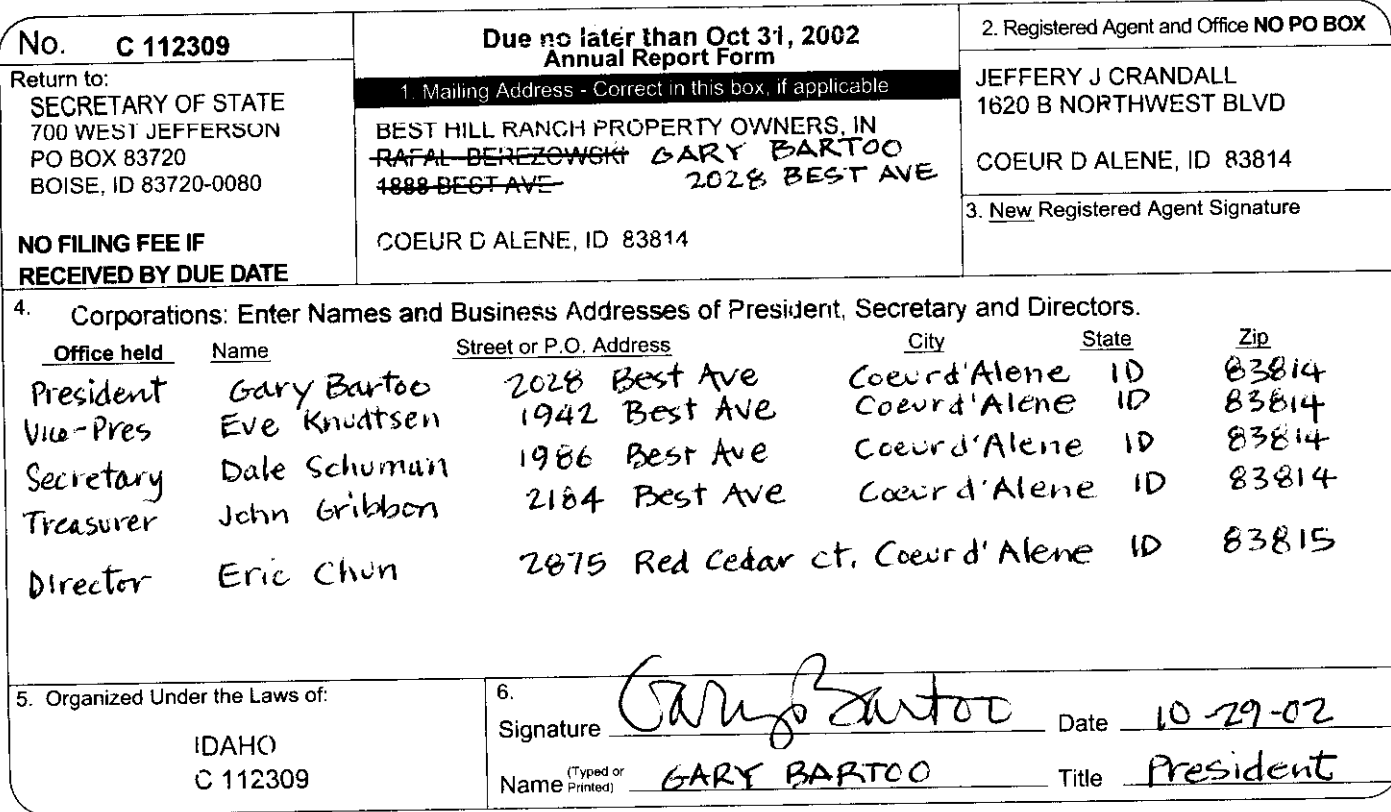 No. C 112309
Return to:
SECRETARY OF STATE
700 WEST JEFFERSON
PO BOX 83720
BOISE, ID 83720-0080
NO FILING FEE IF
RECEIVED BY DUE DATE
Due no later than Oct 31, 2002
Annual Report Form
1. Mailing Address - Correct in this box, if applicable
BEST HILL RANCH PROPERTY OWNERS, IN
RAFAL BEREZOWSKI GARY BARTOO
1888 BEST AVE 2028 BEST AVE
COEUR D ALENE, ID 83814
2. Registered Agent and Office NO PO BOX
JEFFERY J CRANDALL
1620 B NORTHWEST BLVD
COEUR D ALENE, ID 83814
3. New Registered Agent Signature
4. Corporations: Enter Names and Business Addresses of President, Secretary and Directors.
Office held Name Street or P.O. Address City State Zip
President Gary Bartoo 2028 Best Ave Coeur d'Alene ID 83814
Vice-Pres Eve Knudtsen 1942 Best Ave Coeur d'Alene ID 83814
Secretary Dale Schuman 1986 Best Ave Coeur d'Alene ID 83814
Treasurer John Gribbon 2184 Best Ave Coeur d'Alene ID 83814
Director Eric Chun 2875 Red Cedar ct. Coeur d'Alene ID 83815
5. Organized Under the Laws of:
IDAHO
C 112309
6.
Signature Gary Bartoo Date 10-29-02
Name (Typed or Printed) GARY BARTOO Title President